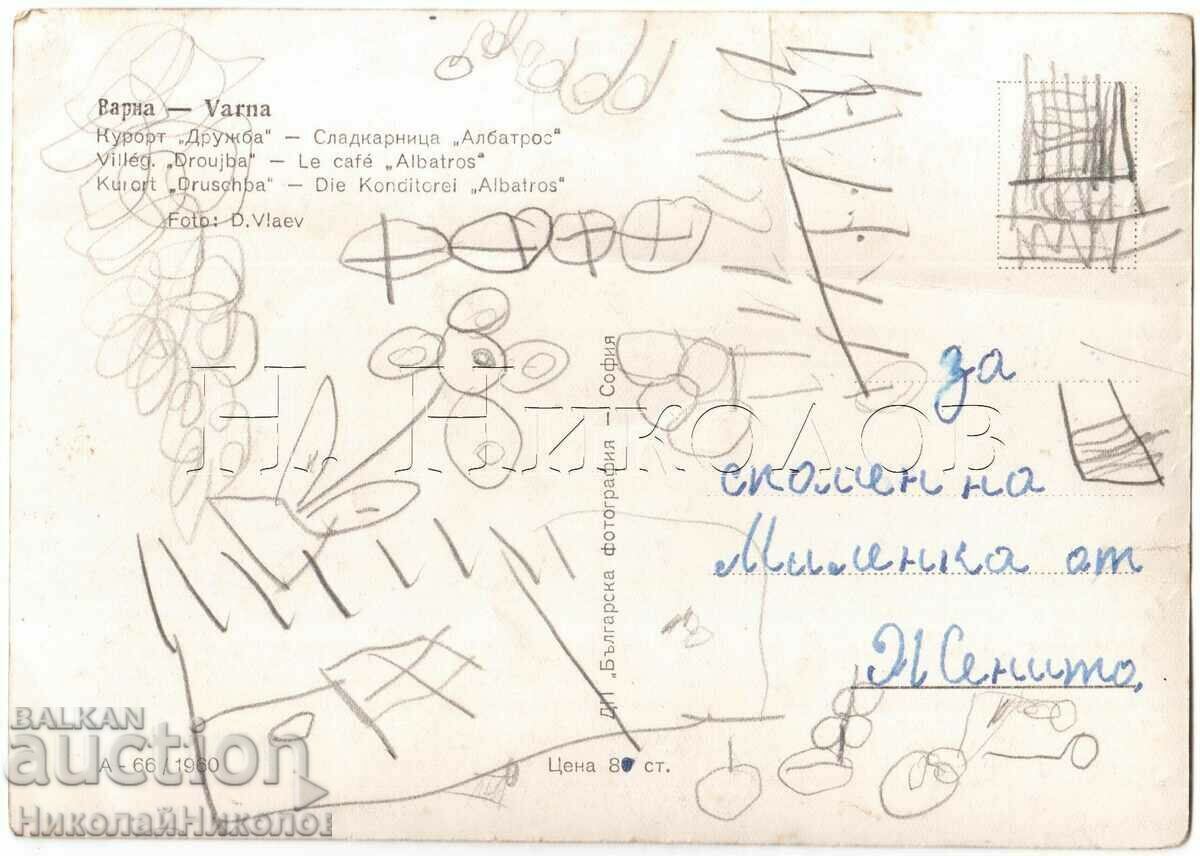 Варна — Varna
Курорт „Дружба" — Сладкарница „Албатрос"
Villég. „Droujba" — Le café „Albatros"
Kurort „Druschba" — Die Konditorei „Albatros"
Foto: D. Vlaev
ДП „Българска фотография — София
за
спомен на
Миленка от
Н. НИКОЛОВ
А - 66 / 1960
Цена 8 ст.
BALKAN
auction
НиколайНиколов